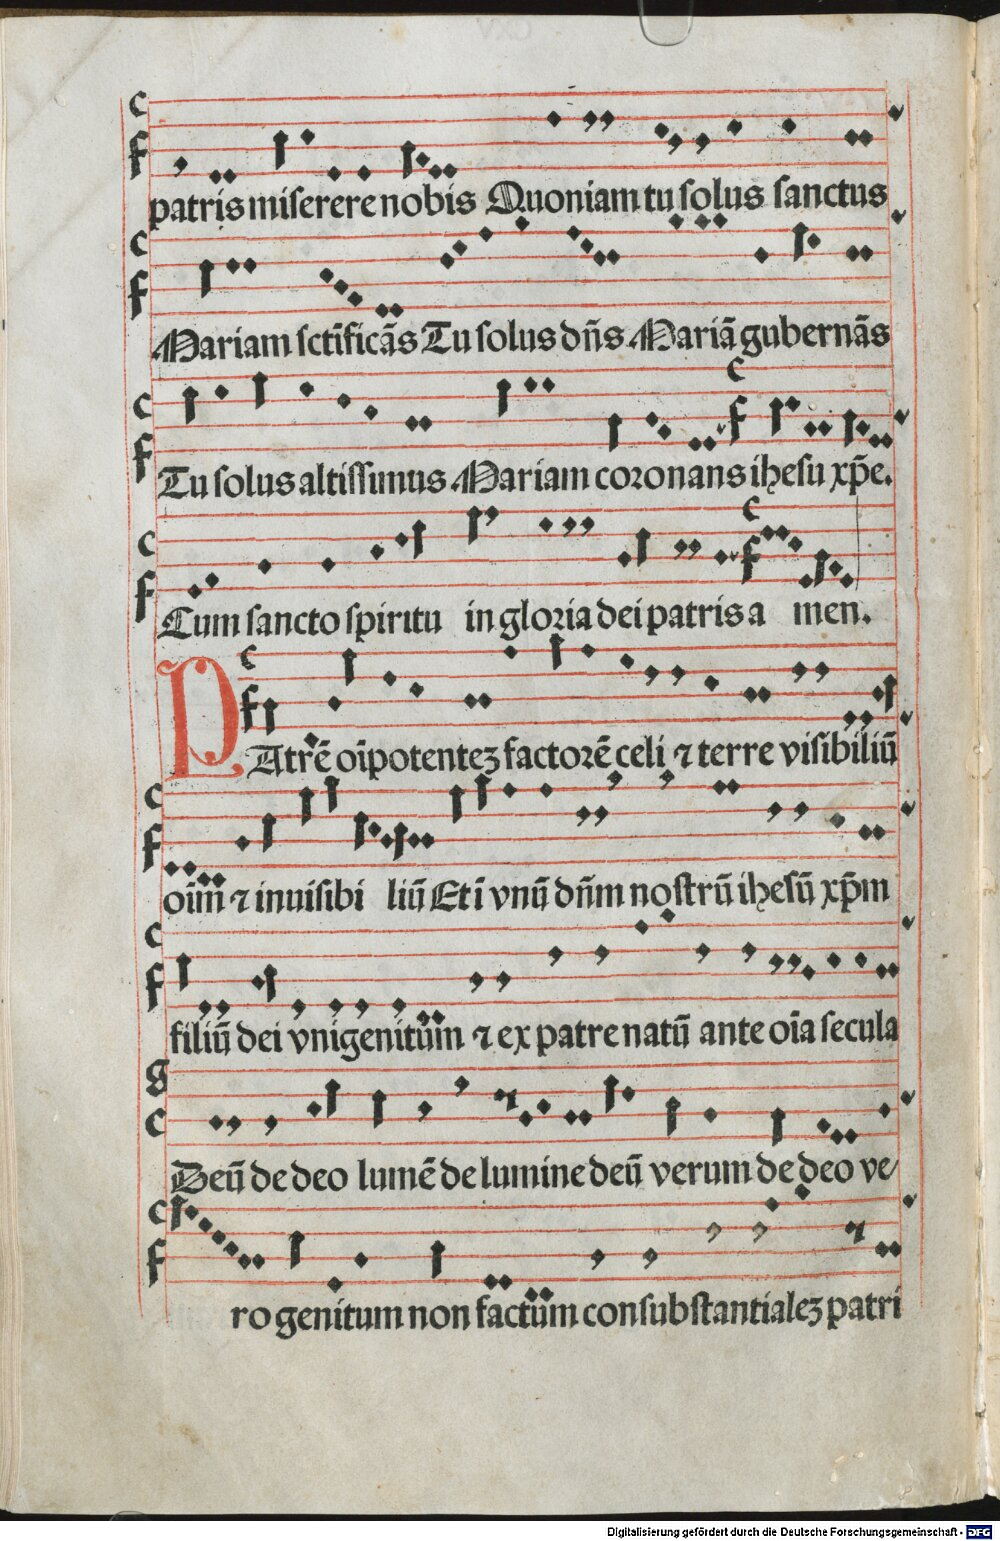 patris miserere nobis Quoniam tu solus sanctus
Mariam sctīficās Tu solus dn̄s Mariā gubernās
Tu solus altissimus Mariam coronans ihesu xp̄e.
Cum sancto spiritu in gloria dei patris a men.
PAtrē oīpotenteꝫ factorē celi ⁊ terre visibiliū
oīm ⁊ inuisibi liū Et ī vnū dn̄m nostrū ihesū xp̄m
filiū dei vnigenitum ⁊ ex patre natū ante oīa secula
Deū de deo lumē de lumine deū verum de deo ve/
ro genitum non factum consubstantialeꝫ patri
Digitalisierung gefördert durch die Deutsche Forschungsgemeinschaft - DFG